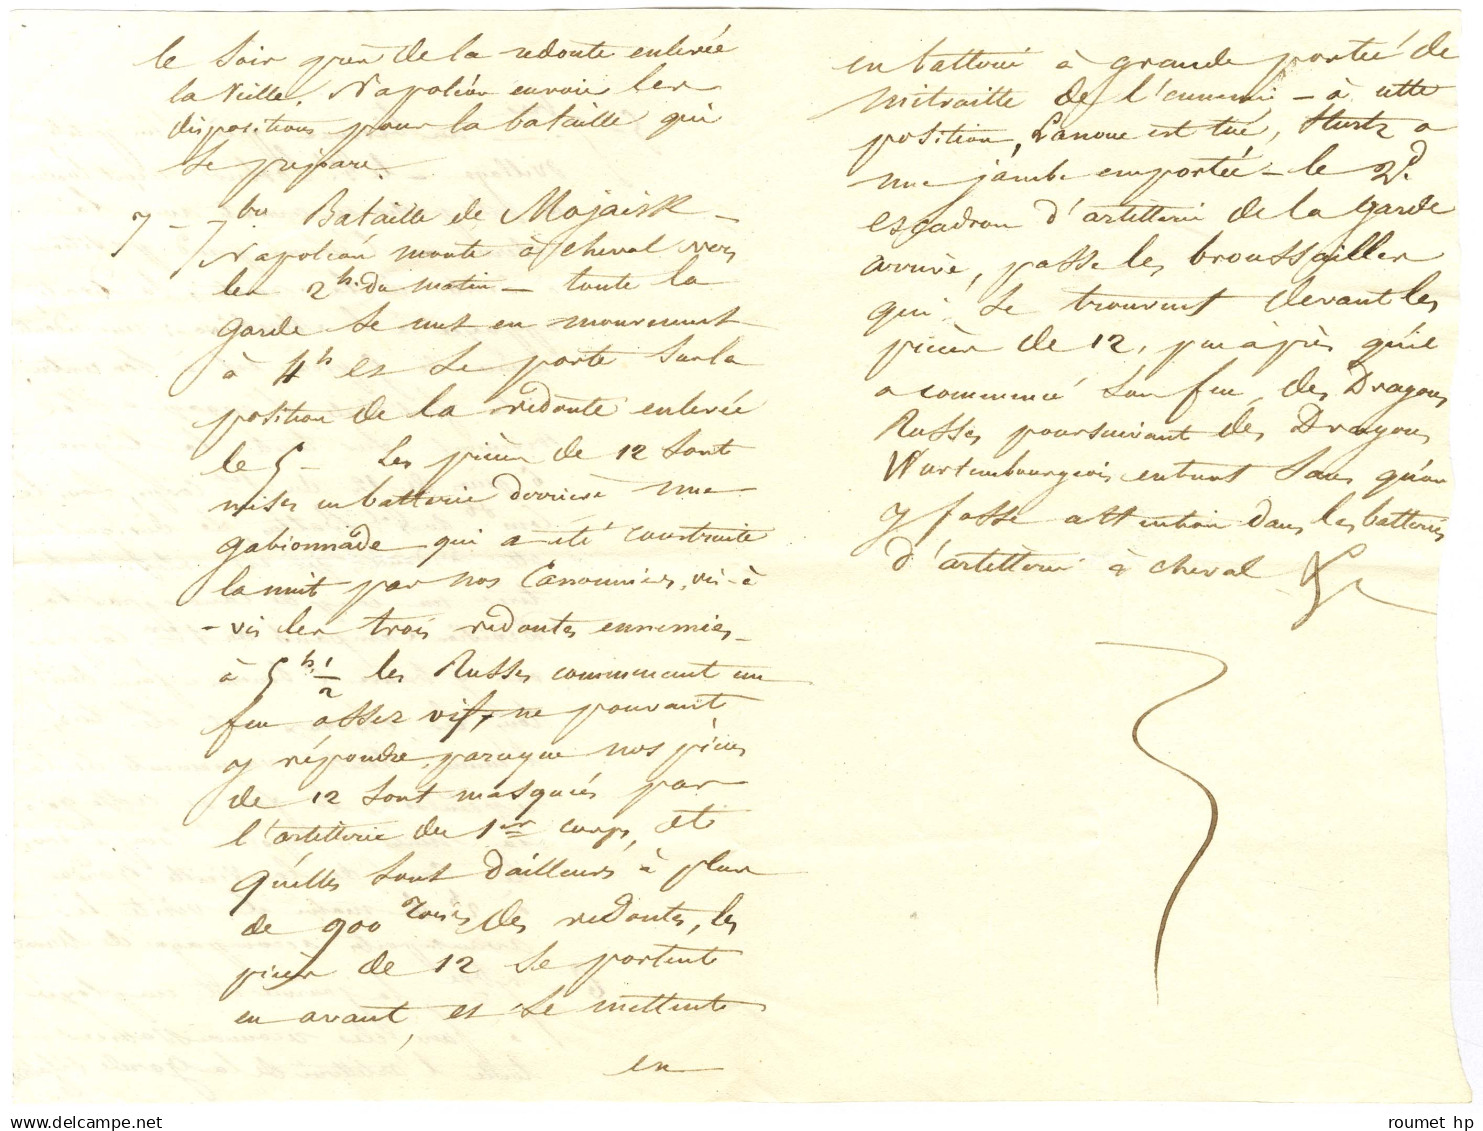 le soir près de la redoute enlevée
la veille. Napoléon envoie les
dispositions pour la bataille qui
se prépare.
7 - 7bre Bataille de Mojaisk -
Napoléon monte à cheval vers
les 2h. du matin - toute la
garde se met en mouvement
à 4h et se porte sur la
position de la redoute enlevée
le 5 - Les pièces de 12 sont
mises en batterie derrière une
gabionnade qui a été construite
la nuit par nos Canonniers, vis-à
-vis les trois redoutes ennemies -
à 5h. 1/2 les Russes commencent un
feu assez vif, ne pouvant
y répondre parceque nos pièces
de 12 sont masquées par
l'artillerie du 1er corps, et
qu'elles sont d'ailleurs à plus
de 900 toises des redoutes, les
pièces de 12 se portent
en avant, et se mettent
en
en batterie à grande portée de
mitraille de l'ennemi - à cette
position, Lanoue est tué, Hurtz a
une jambe emportée - le 2d.
escadron d'artillerie de la garde
arrive, passe les broussailles
qui se trouvent devant les
pièces de 12, peu après qu'il
a commencé son feu, des Dragons
Russes poursuivant des Dragons
Wurtembourgeois entrent sans qu'on
y fasse attention dans les batteries
d'artillerie à cheval
roumet hp